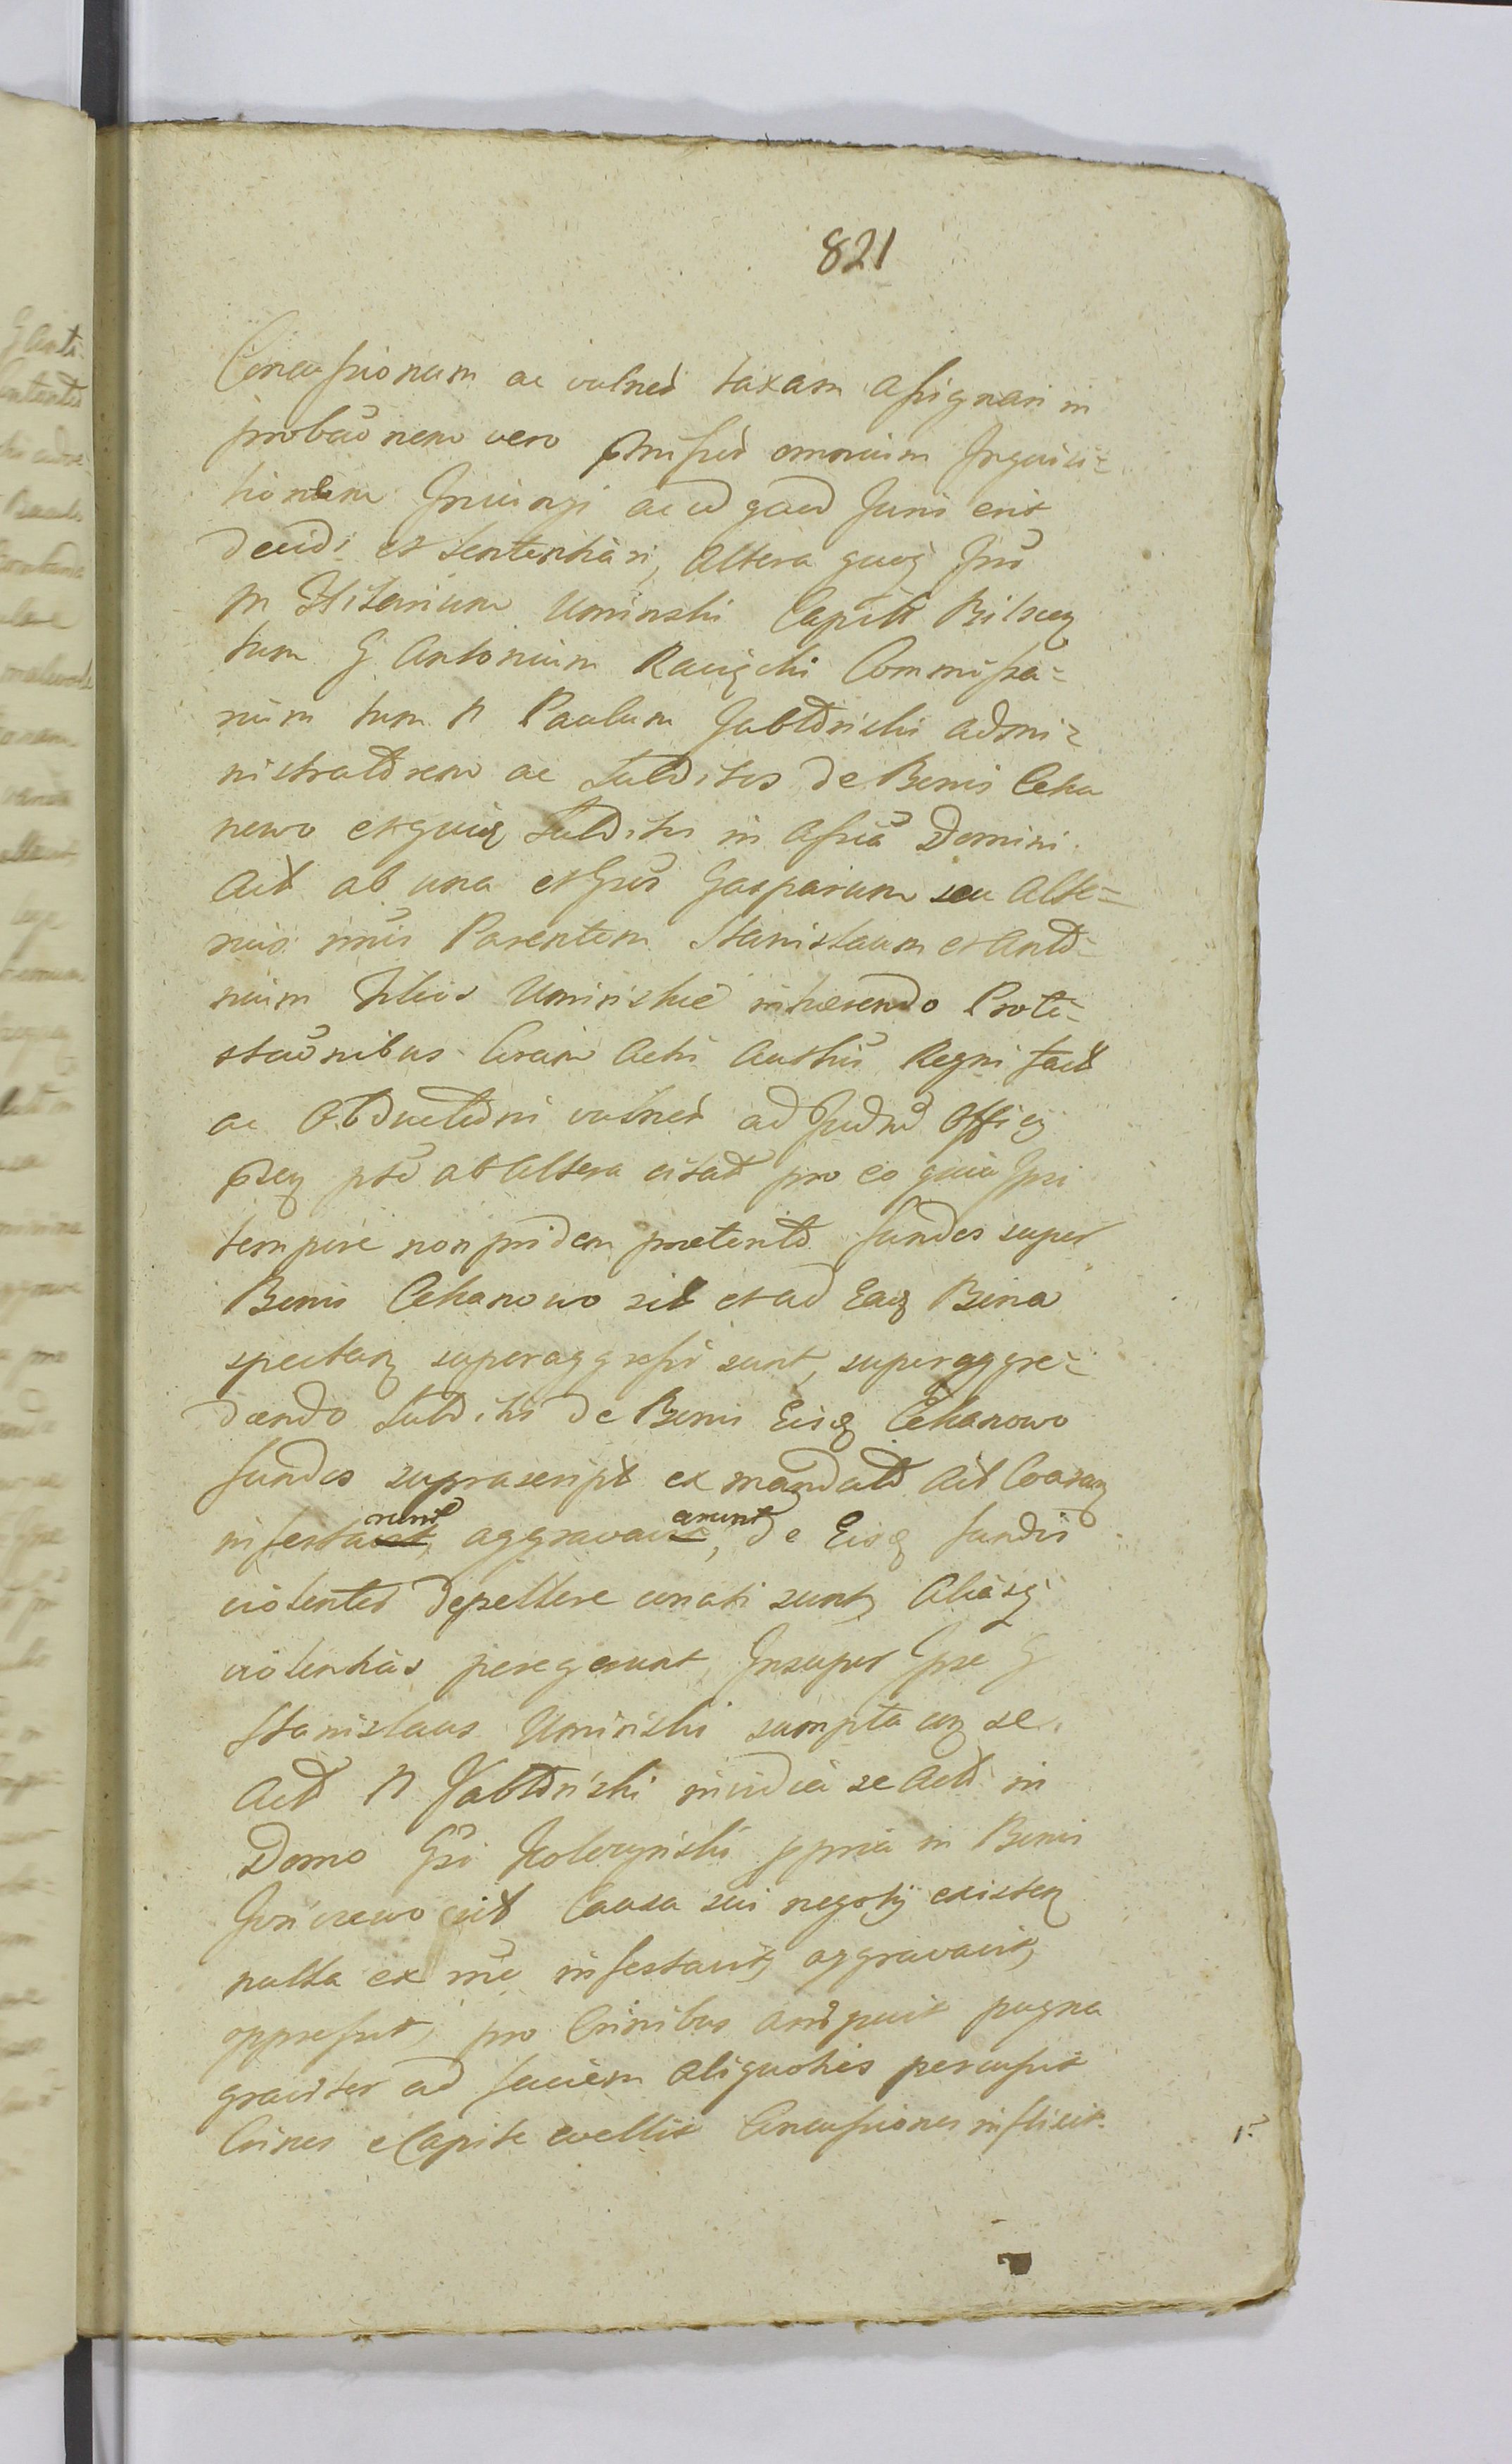 821
Concussionum ac vulner taxam assignari in
probaonem vero omnium Inquisi=
tionem Iniungi ac id qd Juris erit
decidi et sententiari, altera quoq Inter
M Hilarium Uminski Capit Bilscen
tum G Antonium Commissa=
rium tum N Paulum Jabłoński admi=
nistratorem ac Subditos de Bonis Ceha
nowo et quiq Subditis in assia Domini
Act ab una et Gsos Gasparum seu alte=
rius nois Parentem Stanislaum et Anto=
nium Filios Uminskie inhaerendo Prote=
staonibus Coram Actis Authen Regni fact
ac Obductioni vulner ad Judic Officij
psen pte ab altera citat pro eo quia Ipsi
tempore non pridem praeterito fundos super
Bonis Cehanowo sit et ad Eaq Bona
spectan superaggressi sunt, superaggre=
diendo Subditis de Bonis Eisq Cehanowo
fundos suprascript ex mandato Act Coaran
infestarunt, aggravarunt, de Eisq fundis
violenter depellere conati sunt, aliasq
violentias peregerunt, Insuper Ipse G
Stanislaus Uminski sumpta erg se
Act N Jabłoński invidia se Act in
Domo Gsi ppria in Bonis
sit Causa sui negotij existen
nulla ex re infestavit, aggravavit,
oppressit, pro Crinibus arripuit pugna
graviter ad faciem aliquoties percussit
Crines e Capite evellit Concussiones inflixit